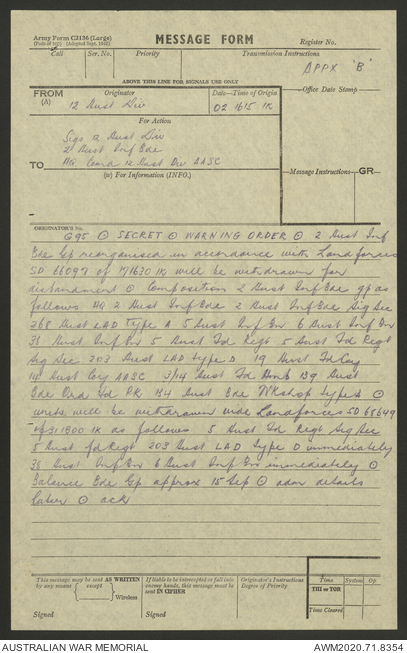 Army Form C2136 (Large)
MESSAGE FORM
Register No.
Call
Ser. No.
Priority
Transmission Instructions
APPX 'B'
ABOVE THIS LINE FOR SIGNALS USE ONLY
FROM
(A)
Originator
Date—Time of Origin
Office Date Stamp
12 Aust Div
02 1615 K
For Action
Sigs 12 Aust Div
2 Aust Inf Bde
HQ Comd 12 Aust Div AASC
TO
(W) For Information (INFO.)
Message Instructions
GR
ORIGINATOR'S NO.
G95 ⊙ SECRET ⊙ WARNING ORDER ⊙ 2 Aust Inf
Bde Gp reorganised in accordance with Landforces
SD 66097 of 171630 K will be withdrawn for
disbandment ⊙ Composition 2 Aust Inf Bde gp as
follows HQ 2 Aust Inf Bde 2 Aust Inf Bde Sig Sec
268 Aust LAD type A 5 Aust Inf Bn 6 Aust Inf Bn
38 Aust Inf Bn 5 Aust Fd Regt 5 Aust Fd Regt
Sig Sec 203 Aust LAD type D 19 Aust Fd Coy
14 Aust Coy AASC 3/14 Aust Fd Amb 139 Aust
Bde Ord Fd Pk 134 Aust Bde Wkshop type
units will be withdrawn vide Landforces SD 68649
of 311800 K as follows 5 Aust Fd Regt Sig Sec
5 Aust fd Regt 203 Aust LAD type D immediately
38 Aust Inf Bn 6 Aust Inf Bn immediately ⊙
Balance Bde Gp approx 15 Sep ⊙ adm details
later ⊙ ack
This message may be sent AS WRITTEN
by any means
(except
) Wireless
Signed
If liable to be intercepted or fall into
enemy hands, this message must be
sent IN CIPHER
Signed
Originator's Instructions
Degree of Priority
Time
System
Op
THI or TOR
Time Cleared
AUSTRALIAN WAR MEMORIAL
AWM2020.71.8354